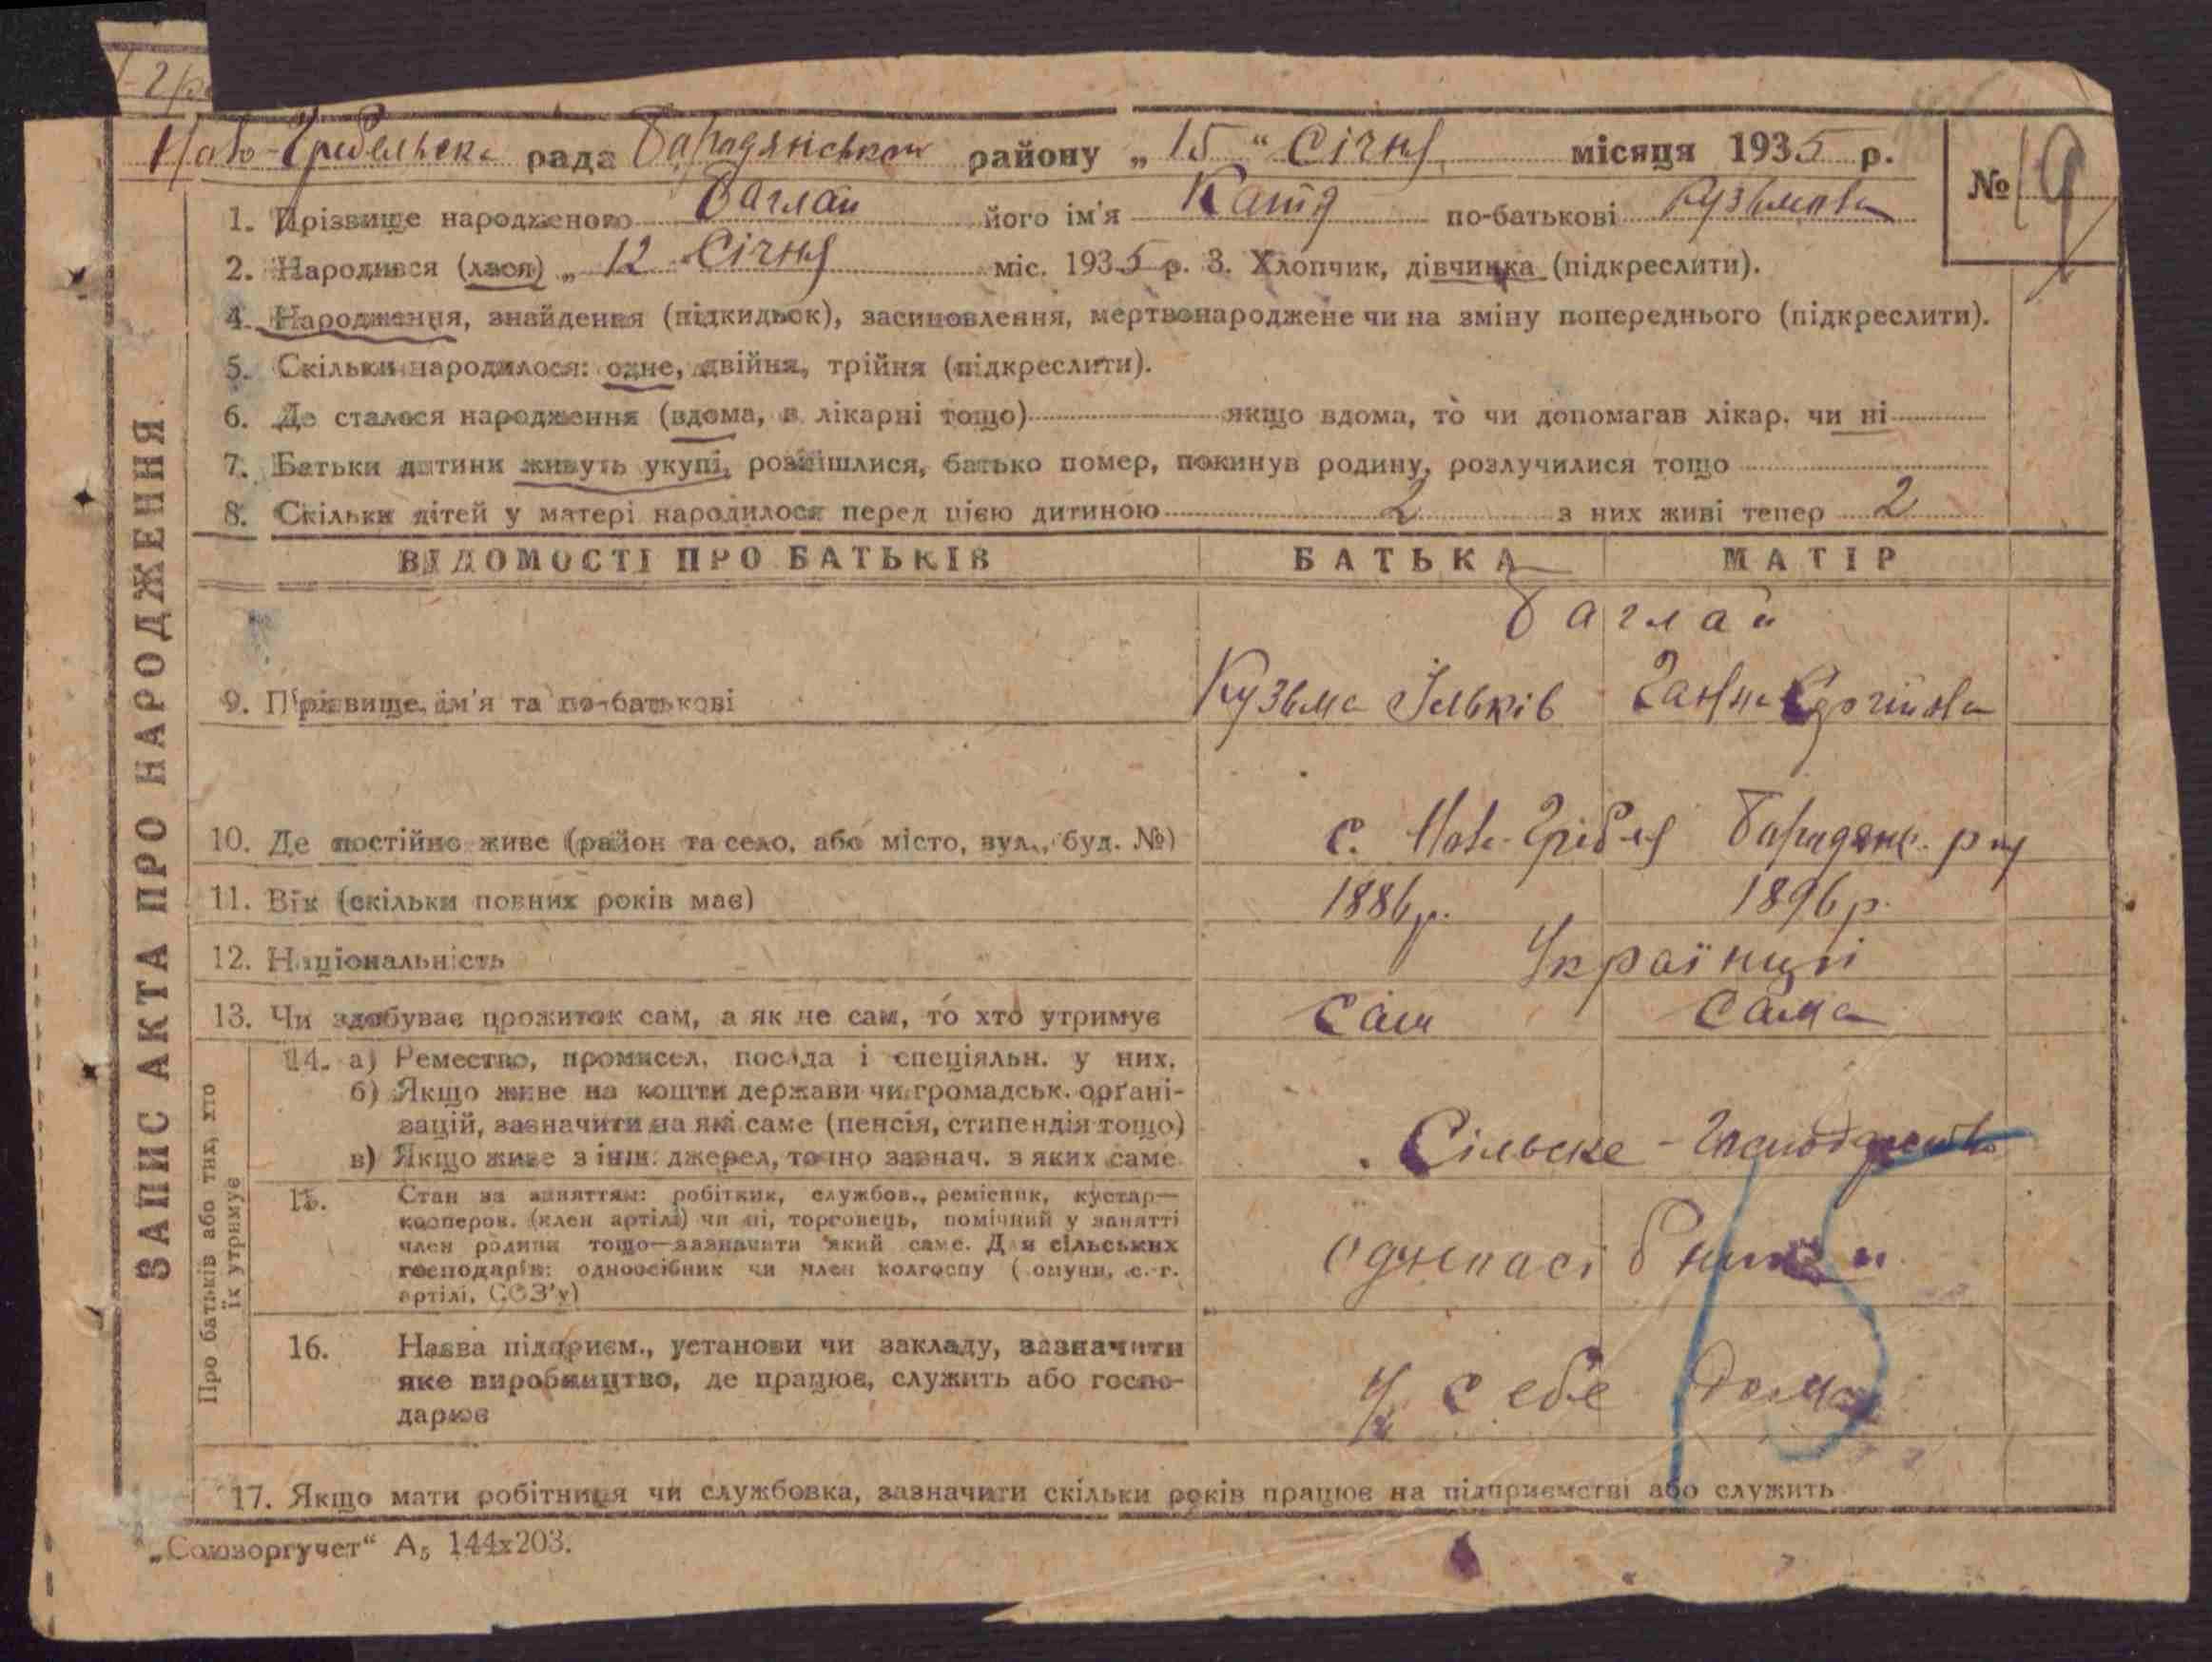 Ново-Гребельска рада Бародянського району „15“ Січня місяця 1935 р.
№ 19
1. Прізвище народженого Баглай його ім'я Катя по-батькові Кузьмівна
2. Народився (лася) „12 Січня міс. 1935 р. 3. Хлопчик, дівчинка (підкреслити).
4. Народження, знайдення (підкидьок), засиновлення, мертвонароджене чи на зміну попереднього (підкреслити).
5. Скільки народилося: одне, двійня, трійня (підкреслити).
6. Де сталося народження (вдома, в лікарні тощо) якщо вдома, то чи допомагав лікар, чи ні
7. Батьки дитини живуть укупі, розійшлися, батько помер, покинув родину, розлучилися тощо
8. Скільки дітей у матері народилося перед цією дитиною 2 з них живі тепер 2
ЗАПИС АКТА ПРО НАРОДЖЕННЯ
ВІДОМОСТІ ПРО БАТЬКІВ БАТЬКА МАТІР
Баглай
9. Прізвище, ім'я та по-батькові Кузьма Ільків Ганна Сергіївна
10. Де постійно живе (район та село, або місто, вул., буд. №) с. Ново-Гребля Бародянс. р-ну
11. Вік (скільки повних років має) 1886 р. 1896 р.
12. Національність Українці
13. Чи здобуває прожиток сам, а як не сам, то хто утримує Сам Сама
Про батьків або тих, хто їх утримує
14. а) Ремество, промисел, посада і спеціяльн. у них.
б) Якщо живе на кошти держави чи громадськ. орґані-
зацій, зазначити на які саме (пенсія, стипендія тощо)
в) Якщо живе з інш. джерел, точно зазнач. з яких саме
Сільске-Господарство
15. Стан за заняттям: робітник, службов., ремісник, кустар—
кооперов. (член артілі) чи ні, торговець, помічний у занятті
член родини тощо—зазначити який саме. Для сільських
господарів: одноосібник чи член колгоспу (комуни, с.-г.
артілі, СОЗ'у)
16. Назва підприєм., установи чи закладу, зазначити
яке виробництво, де працює, служить або госпо-
дарює
У себе дома
17. Якщо мати робітниця чи службовка, зазначити скільки років працює на підприємстві або служить
„Союзоргучет“ А5 144х203.